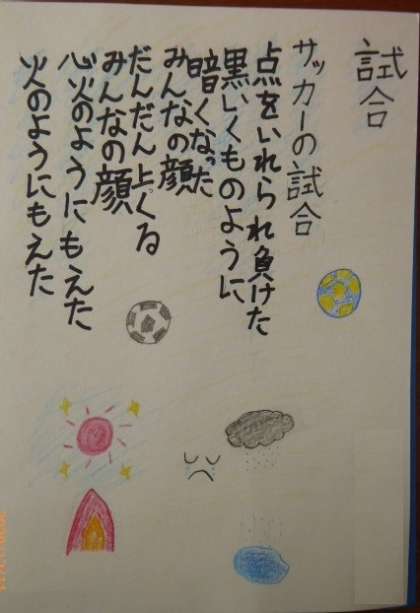 試合
サッカーの試合
点をいれられ負けた
黒いくものように
暗くなった
みんなの顔
だんだん上くる
みんなの顔
心火のようにもえた
火のようにもえた